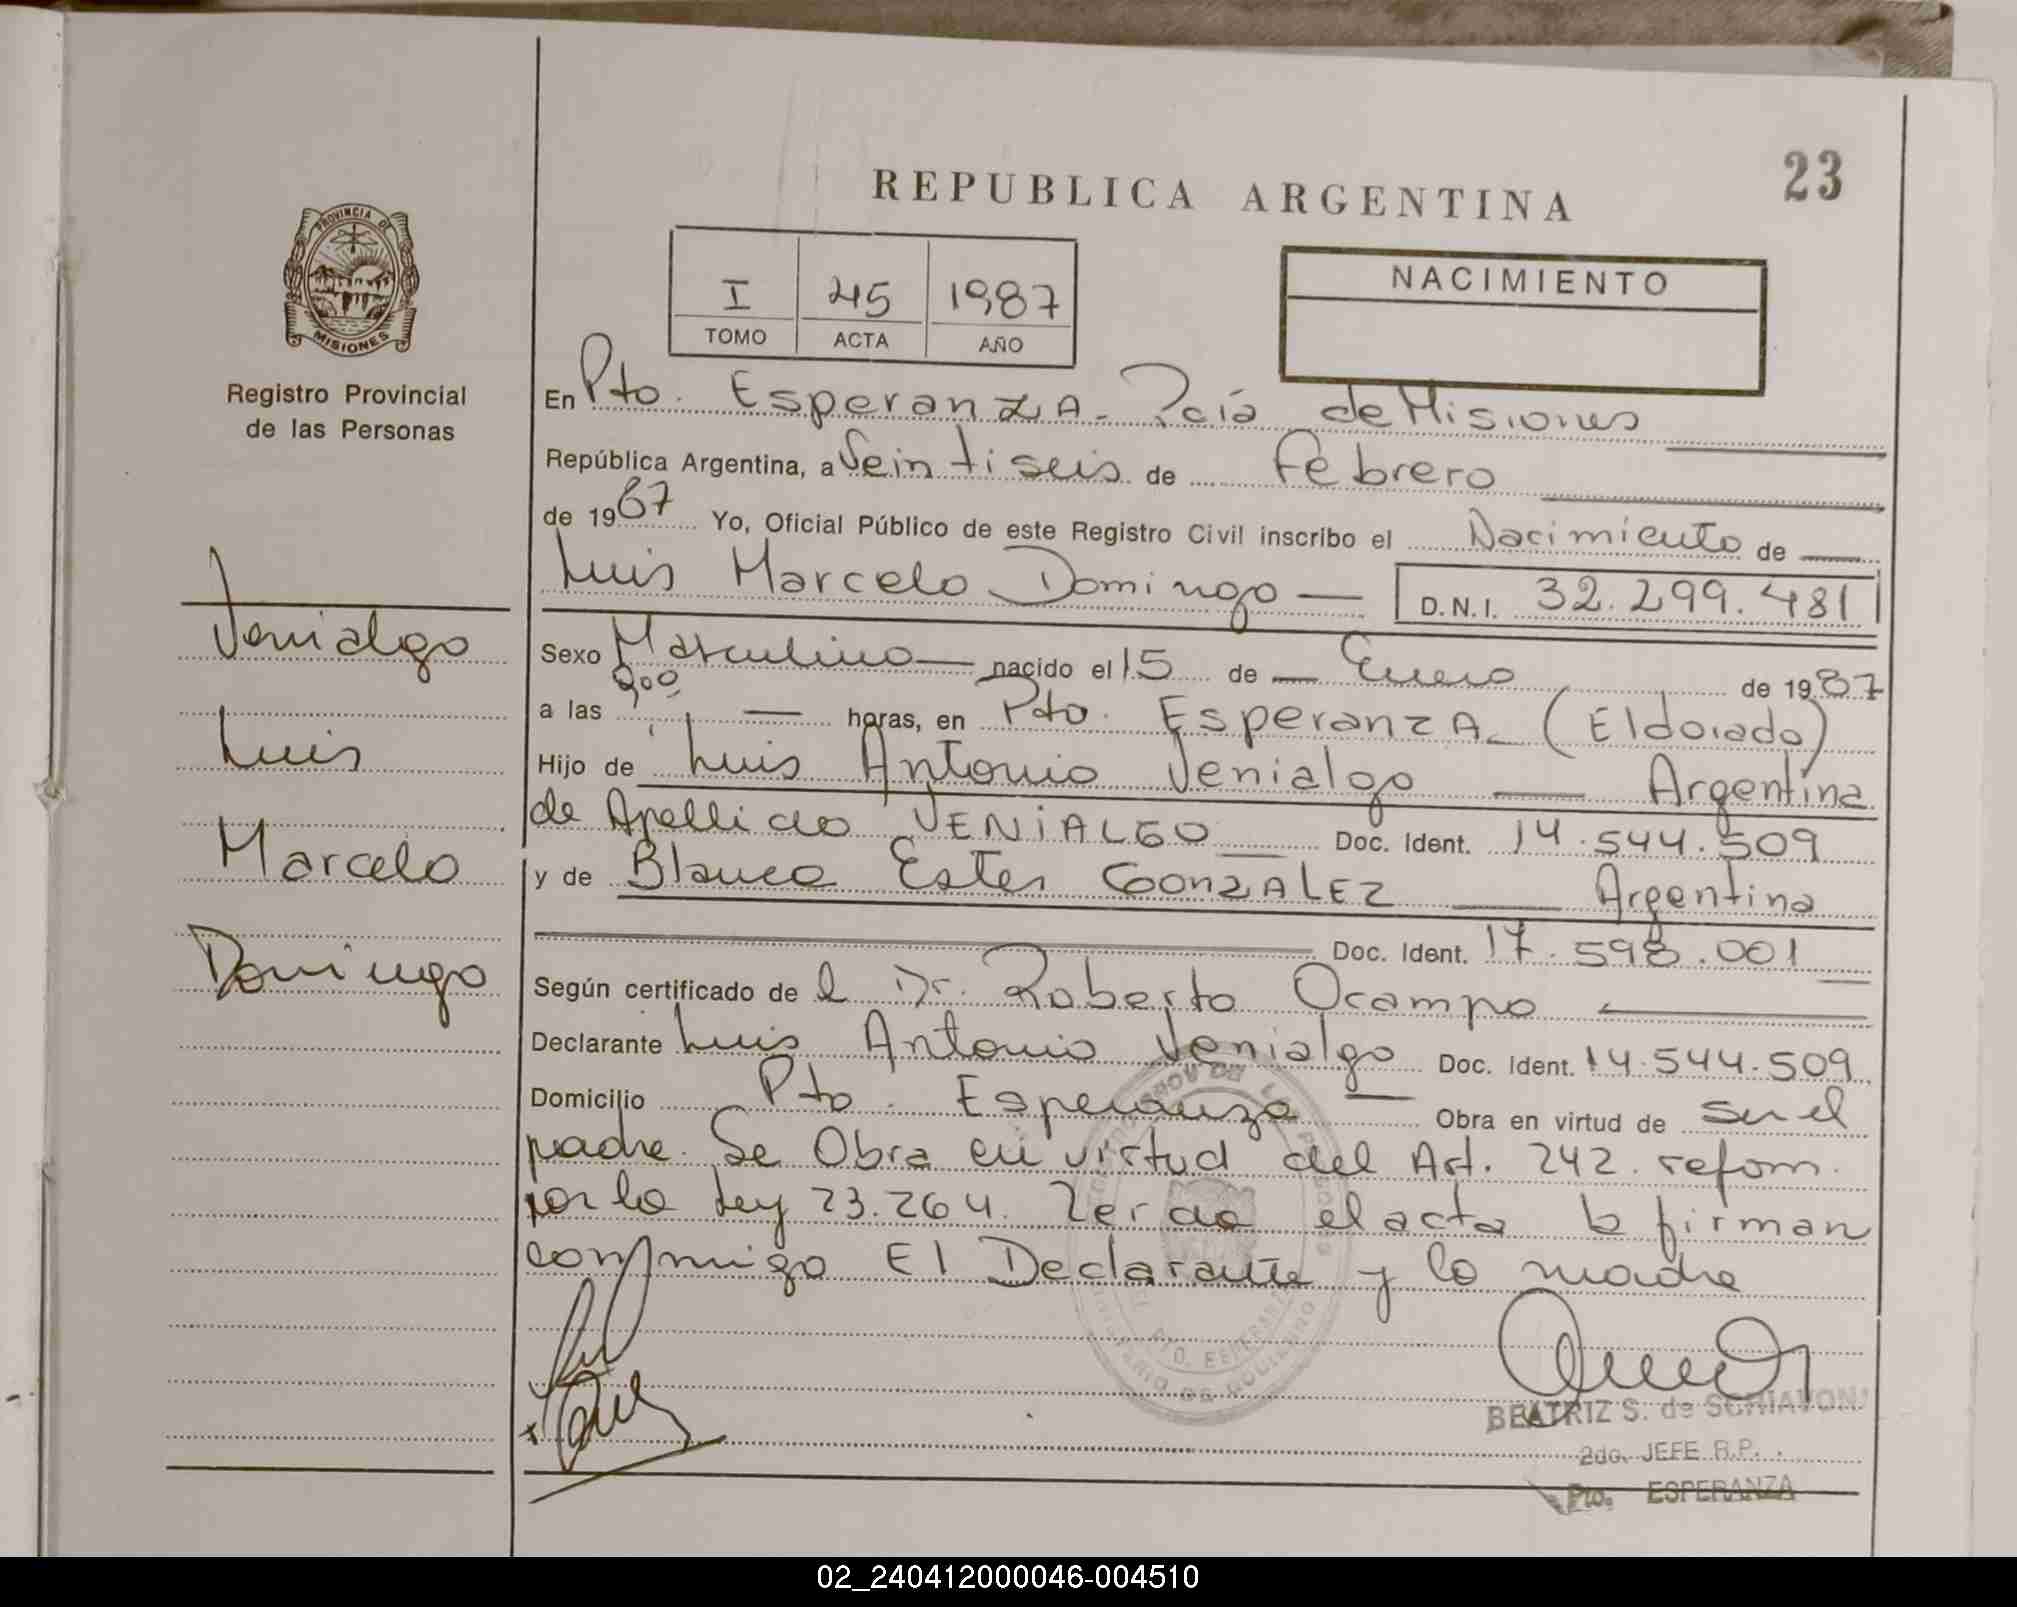 REPUBLICA ARGENTINA
23
PROVINCIA DE
MISIONES
Registro Provincial
de las Personas
I 45 1987
TOMO ACTA AÑO
NACIMIENTO
En Pto. Esperanza - Pcía de Misiones
República Argentina, a Veintiseis de Febrero
de 1987 Yo, Oficial Público de este Registro Civil inscribo el Nacimiento de
Luis Marcelo Domingo — D.N.I. 32.299.481
Venialgo
Luis
Marcelo
Domingo
Sexo Masculino — nacido el 15 de — Enero de 1987
a las 9,00 — horas, en Pto. Esperanza - (Eldorado)
Hijo de Luis Antonio Venialgo — Argentina
de Apellido VENIALGO — Doc. Ident. 14.544.509
y de Blanca Ester GONZALEZ — Argentina
Doc. Ident. 17.598.001
Según certificado de l Dr. Roberto Ocampo
Declarante Luis Antonio Venialgo Doc. Ident. 14.544.509
Domicilio Pto. Esperanza — Obra en virtud de ser el
padre. Se Obra en virtud del Art. 242. reform.
por la Ley 23.264. Leida el acta la firman
conmigo El Declarante y la madre
PTO. ESPERANZA
MINISTERIO DE GOBIERNO
BEATRIZ S. de SCHIAVONI
2do. JEFE R.P.
Pto. ESPERANZA
02_240412000046-004510